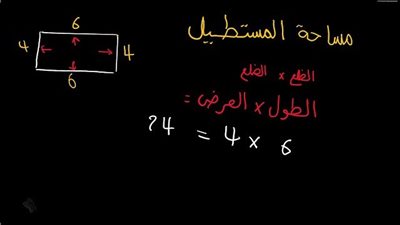 مساحة المستطيل
6
4 4
6
الضلع × الضلع
الطول × العرض =
24 = 4 × 6